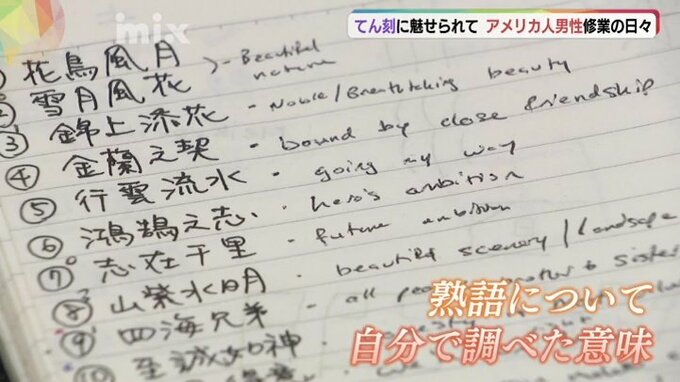 imix
てん刻に魅せられて アメリカ人男性修業の日々
花鳥風月 > - Beautiful nature
② 雪月風花
③ 錦上添花 - Noble/Breathtaking beauty
④ 金蘭之契 - bound by close friendship
⑤ 行雲流水 - going my way
⑥ 鴻鵠之志 - hero's ambition
⑦ 志在千里 - future ambition
⑧ 山紫水明 - beautiful scenery/landscape
⑨ 四海兄弟 - all sister
⑩ 至誠如神
熟語について
自分で調べた意味